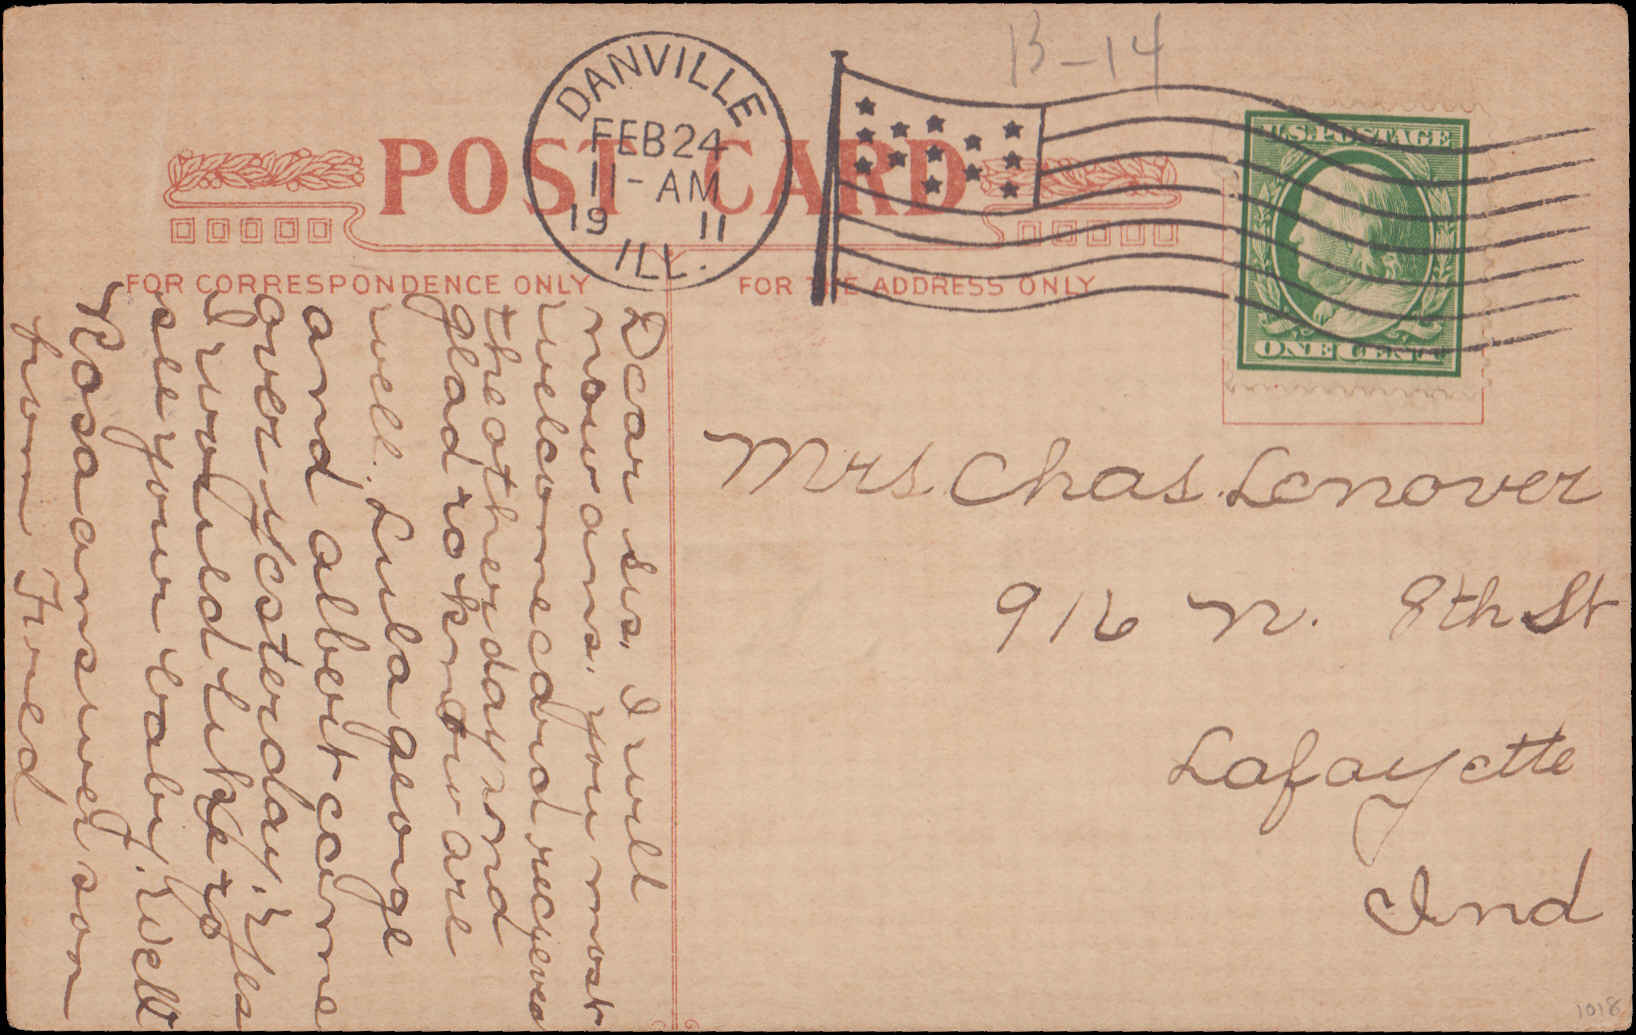 13-14
DANVILLE
FEB 24
11-AM
19 11
ILL.
U.S. POSTAGE
ONE CENT
POST CARD
FOR CORRESPONDENCE ONLY
FOR THE ADDRESS ONLY
Dear sis, I will
now ans, you most
welcome card recieved
the other day and
glad to know are
well. Lula George
and albert came
over yesterday. Yes
I would like to
see your baby. Well
Rosa answer soon
from Fred
Mrs. Chas. Lenover
916 N. 8th St
Lafayette
Ind
1018